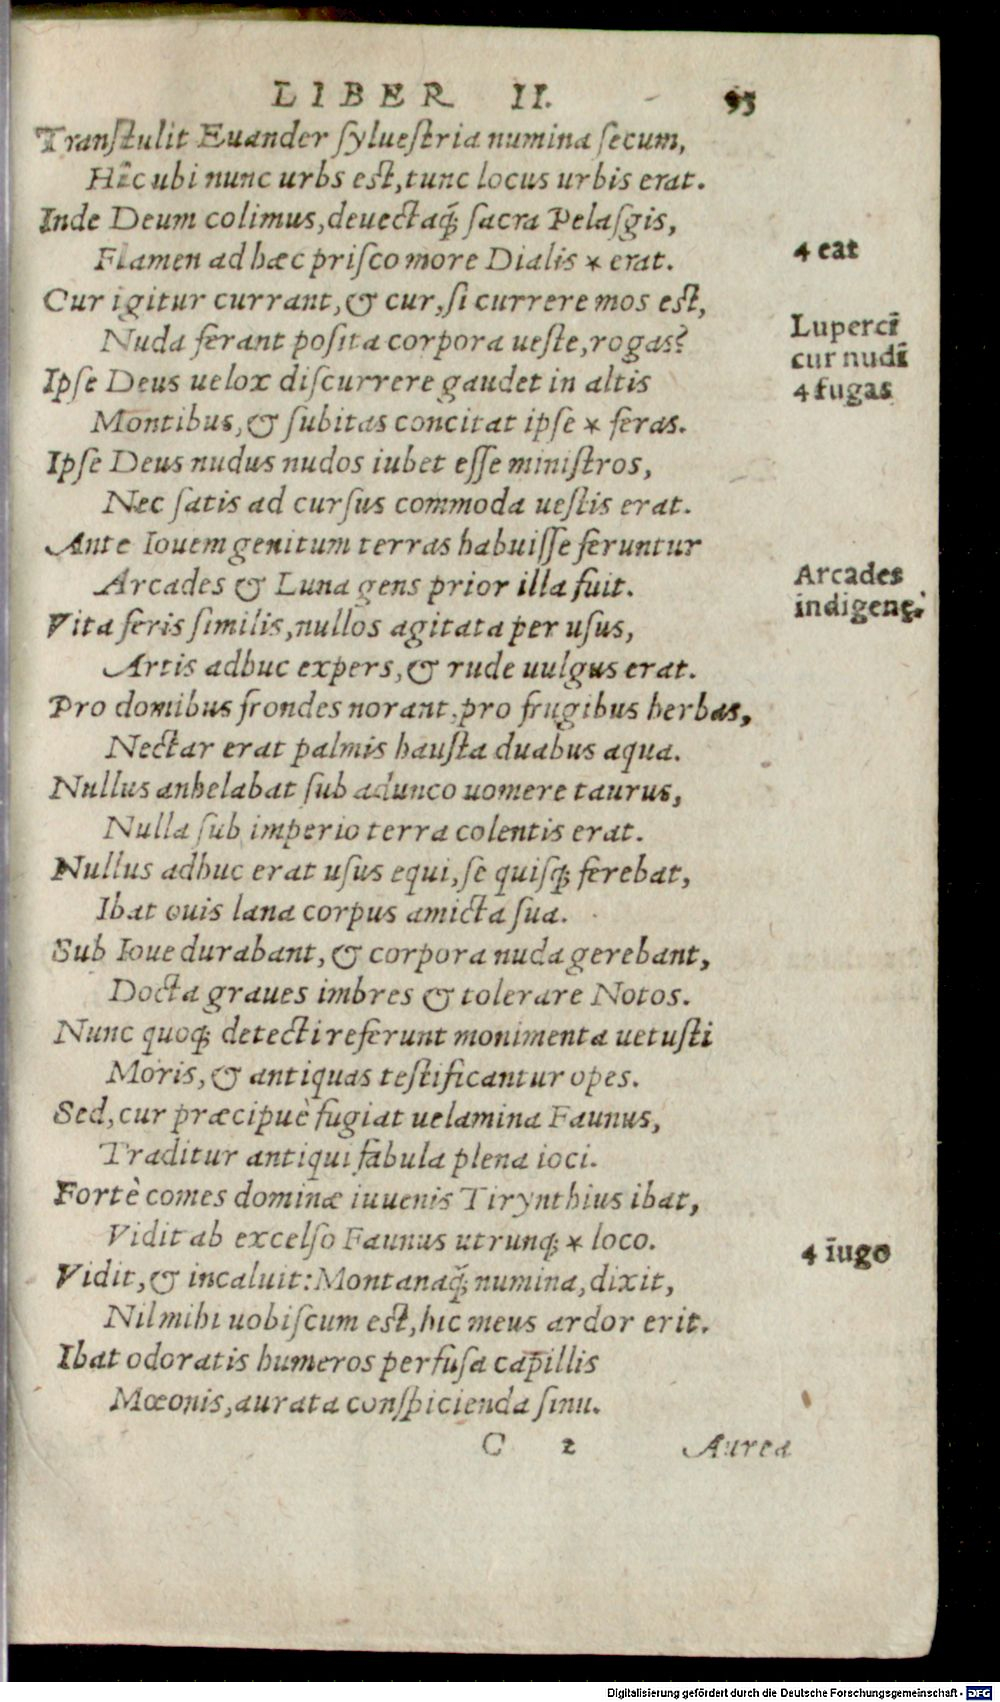 LIBER II. 95
Tranſtulit Euander ſylueſtria numina ſecum,
Hîc ubi nunc urbs eſt, tunc locus urbis erat.
Inde Deum colimus, deuectaq́; ſacra Pelaſgis,
Flamen ad hæc priſco more Dialis * erat.
4 eat
Cur igitur currant, & cur, ſi currere mos eſt,
Nuda ferant poſita corpora ueſte, rogas?
Luperci
cur nudi
Ipſe Deus uelox diſcurrere gaudet in altis
4 fugas
Montibus, & ſubitas concitat ipſe * feras.
Ipſe Deus nudus nudos iubet eſſe miniſtros,
Nec ſatis ad curſus commoda ueſtis erat.
Ante Iouem genitum terras habuiſſe feruntur
Arcades & Luna gens prior illa fuit.
Arcades
indigenę.
Vita feris ſimilis, nullos agitata per uſus,
Artis adhuc expers, & rude uulgus erat.
Pro domibus frondes norant, pro frugibus herbas,
Nectar erat palmis hauſta duabus aqua.
Nullus anhelabat ſub adunco uomere taurus,
Nulla ſub imperio terra colentis erat.
Nullus adhuc erat uſus equi, ſe quiſq; ferebat,
Ibat ouis lana corpus amicta ſua.
Sub Ioue durabant, & corpora nuda gerebant,
Docta graues imbres & tolerare Notos.
Nunc quoq; detecti referunt monimenta uetuſti
Moris, & antiquas teſtificantur opes.
Sed, cur præcipuè fugiat uelamina Faunus,
Traditur antiqui fabula plena ioci.
Fortè comes dominæ iuuenis Tirynthius ibat,
Vidit ab excelſo Faunus utrunq; * loco.
4 iugo
Vidit, & incaluit: Montanaq́; numina, dixit,
Nil mihi uobiſcum eſt, hic meus ardor erit.
Ibat odoratis humeros perfuſa capillis
Mœonis, aurata conſpicienda ſinu.
C 2 Aurea
Digitalisierung gefördert durch die Deutsche Forschungsgemeinschaft - DFG